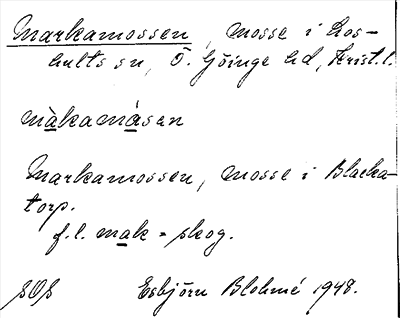 Markamossen, mosse i Los-
hults sn, Ö. Göinge hd, Krist. l.
màkamåsen
Markamossen, mosse i Blacka-
torp.
f.l. mak = skog.
SOS Esbjörn Blohmé 1948.